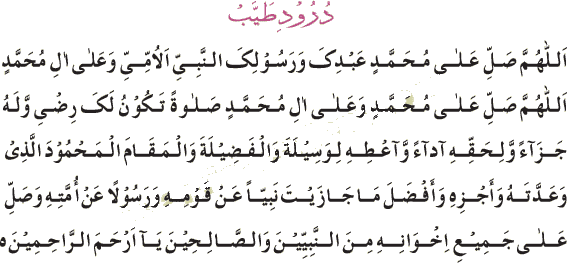 دُرُودِ طَیَّبْ
اَللّٰهُمَّ صَلِّ عَلٰى مُحَمَّدٍ عَبْدِکَ وَرَسُوْلِکَ النَّبِیِّ الْاُمِّیِّ وَعَلٰى اٰلِ مُحَمَّدٍ
اَللّٰهُمَّ صَلِّ عَلٰى مُحَمَّدٍ وَّعَلٰى اٰلِ مُحَمَّدٍ صَلٰوةً تَکُوْنُ لَکَ رِضًى وَّلَهُ
جَزَآءً وَّلِحَقِّهِ اَدَآءً وَّاَعْطِهِ لِوَسِیْلَةَ وَالْفَضِیْلَةَ وَالْمَقَامَ الْمَحْمُوْدَ الَّذِیْ
وَعَدْتَهُ وَاَجْزِهِ وَاَفْضَلَ مَا جَازَیْتَ نَبِیًّا عَنْ قَوْمِهِ وَرَسُوْلًا عَنْ اُمَّتِهِ وَصَلِّ
عَلٰى جَمِیْعِ اِخْوَانِهِ مِنَ النَّبِیِّیْنَ وَالصَّالِحِیْنَ یَآ اَرْحَمَ الرَّاحِمِیْنَ ه